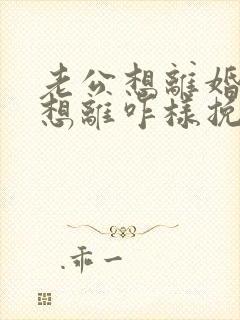 老公想離婚
想離咋樣挽
.乖一